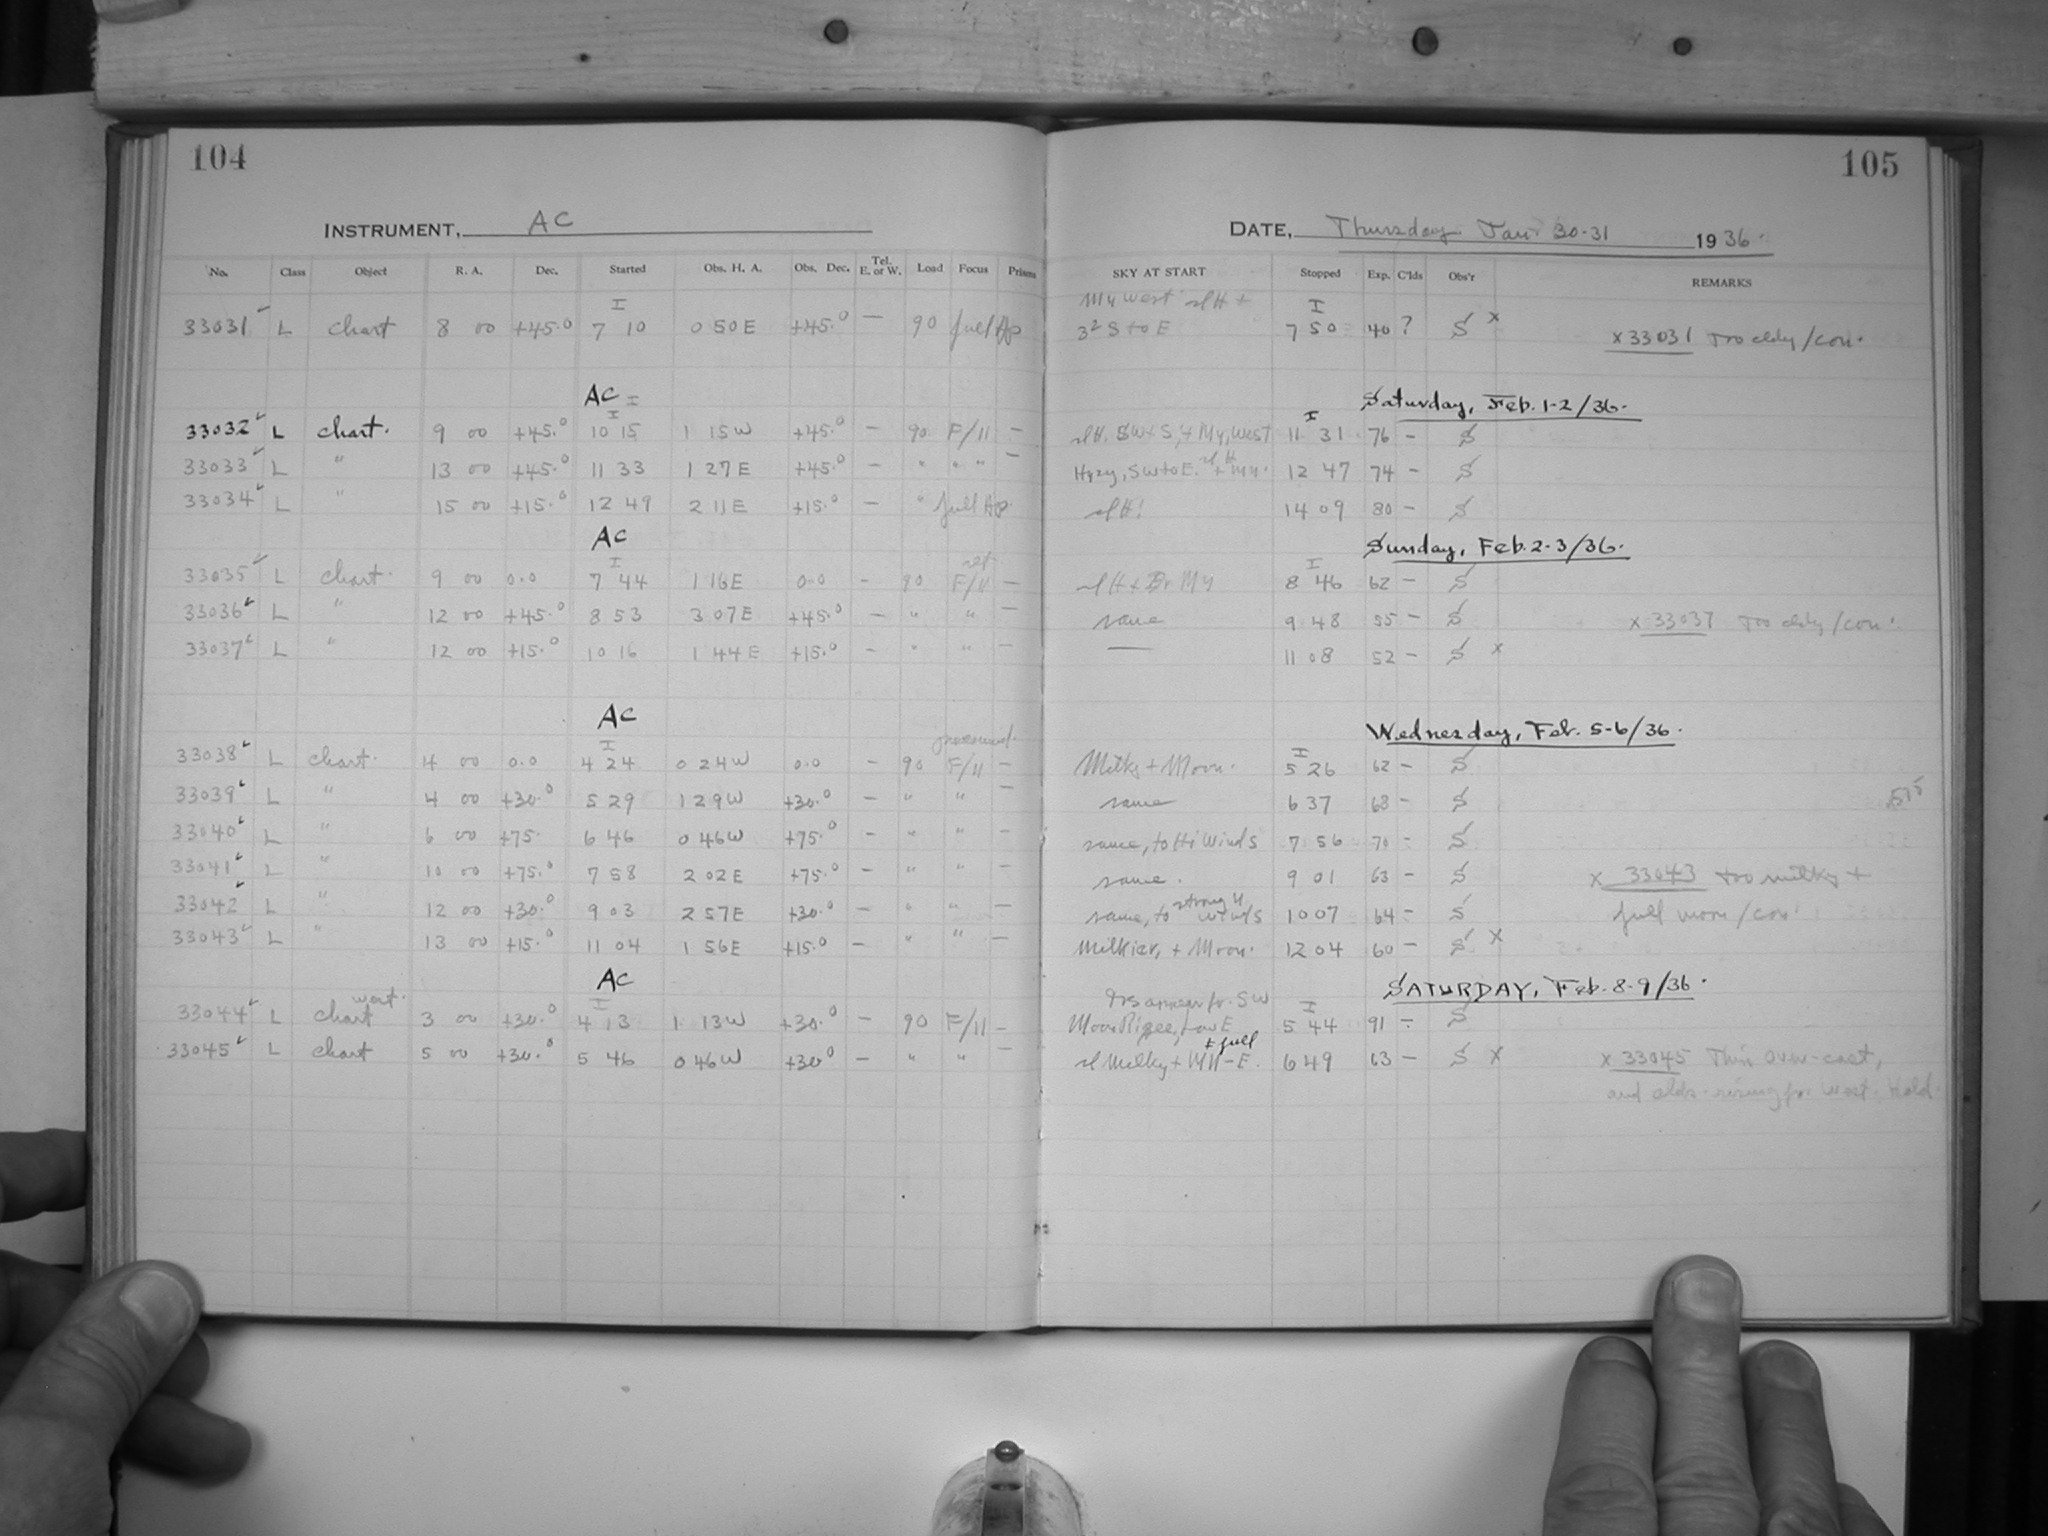 104
INSTRUMENT, AC
No. Class Object R. A. Dec. Started Obs. H. A. Obs. Dec. Tel. E. or W. Load Focus Prisms
I
33031 L chart 8 00 +45.0 7 10 0 50 E +45.0 — 90 full Ap
AC I
I
33032 L chart. 9 00 +45.0 10 15 1 15 W +45.0 — 90 F/11 —
33033 L " 13 00 +45.0 11 33 1 27 E +45.0 — " " " —
33034 L " 15 00 +15.0 12 49 2 11 E +15.0 — " full Ap
AC
I
33035 L chart. 9 00 0.0 7 44 1 16 E 0.0 - 90 F/11 —
33036 L " 12 00 +45.0 8 53 3 07 E +45.0 — " " —
33037 L " 12 00 +15.0 10 16 1 44 E +15.0 - " " —
AC
I
33038 L chart. 4 00 0.0 4 24 0 24 W 0.0 - 90 F/11 —
33039 L " 4 00 +30.0 5 29 1 29 W +30.0 — " " —
33040 L " 6 00 +75. 6 46 0 46 W +75.0 - " " —
33041 L " 10 00 +75.0 7 58 2 02 E +75.0 - " " —
33042 L " 12 00 +30.0 9 03 2 57 E +30.0 — " " —
33043 L " 13 00 +15.0 11 04 1 56 E +15.0 — " " —
AC
west. I
33044 L chart 3 00 +30.0 4 13 1 13 W +30.0 — 90 F/11 —
33045 L chart 5 00 +30.0 5 46 0 46 W +30.0 — " " —
105
DATE, Thursday Jan. 30-31 1936.
SKY AT START Stopped Exp. C'lds Obs'r REMARKS
My West sl H + I
3² S to E 7 50 40 ? S x x 33031 Too cldy/con.
Saturday, Feb. 1-2/36.
I
sl H. SW+S, + My, West 11 31 76 — S
Hazy, SW to E. sl H + My. 12 47 74 — S
sl H! 14 09 80 — S
Sunday, Feb. 2-3/36.
I
sl H + Br My 8 46 62 — S
same 9 48 55 — S x 33037 Too cldy/con.
— 11 08 52 — S x
Wednesday, Feb. 5-6/36.
I
Milky + Moon. 5 26 62 — S
same 6 37 68 — S
same, to Hi Winds 7 56 70 — S
same. 9 01 63 — S x 33043 too milky +
same, to strong H winds 10 07 64 — S full moon/con.
Milkier, + Moon. 12 04 60 — S x
SATURDAY, Feb. 8-9/36.
SW I
Moon low E 5 44 91 — S
+ full
sl Milky + E. 6 49 63 — S x x 33045 Thin over-cast,
and clds rising fr. West. Hold.